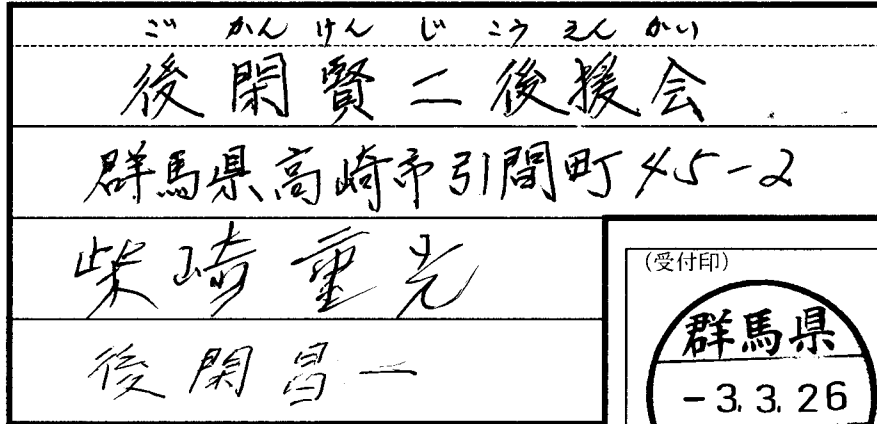 ごかんけんじこうえんかい
後閑賢二後援会
群馬県高崎市引間町45-2
柴崎重光
後閑昌一
(受付印)
群馬県
-3.3.26